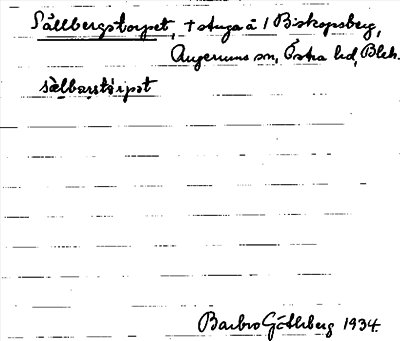 Sällbergstorpet, † stuga å 1 Biskopsberg,
Augerums sn, Östra hd, Blek.
Barbro Göthberg 1934.